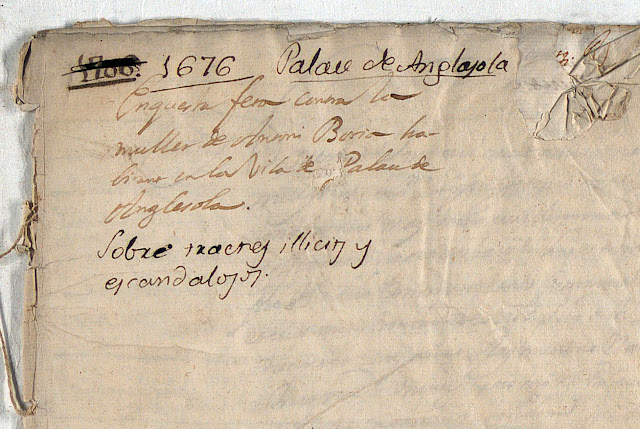 1700. 1676 Palau de Anglesola
Enquesta fera contra la
muller de Antoni Boria ha-
bitant en la Vila de Palau de
Anglesola.
Sobre tractes illicits y
escandalosos.